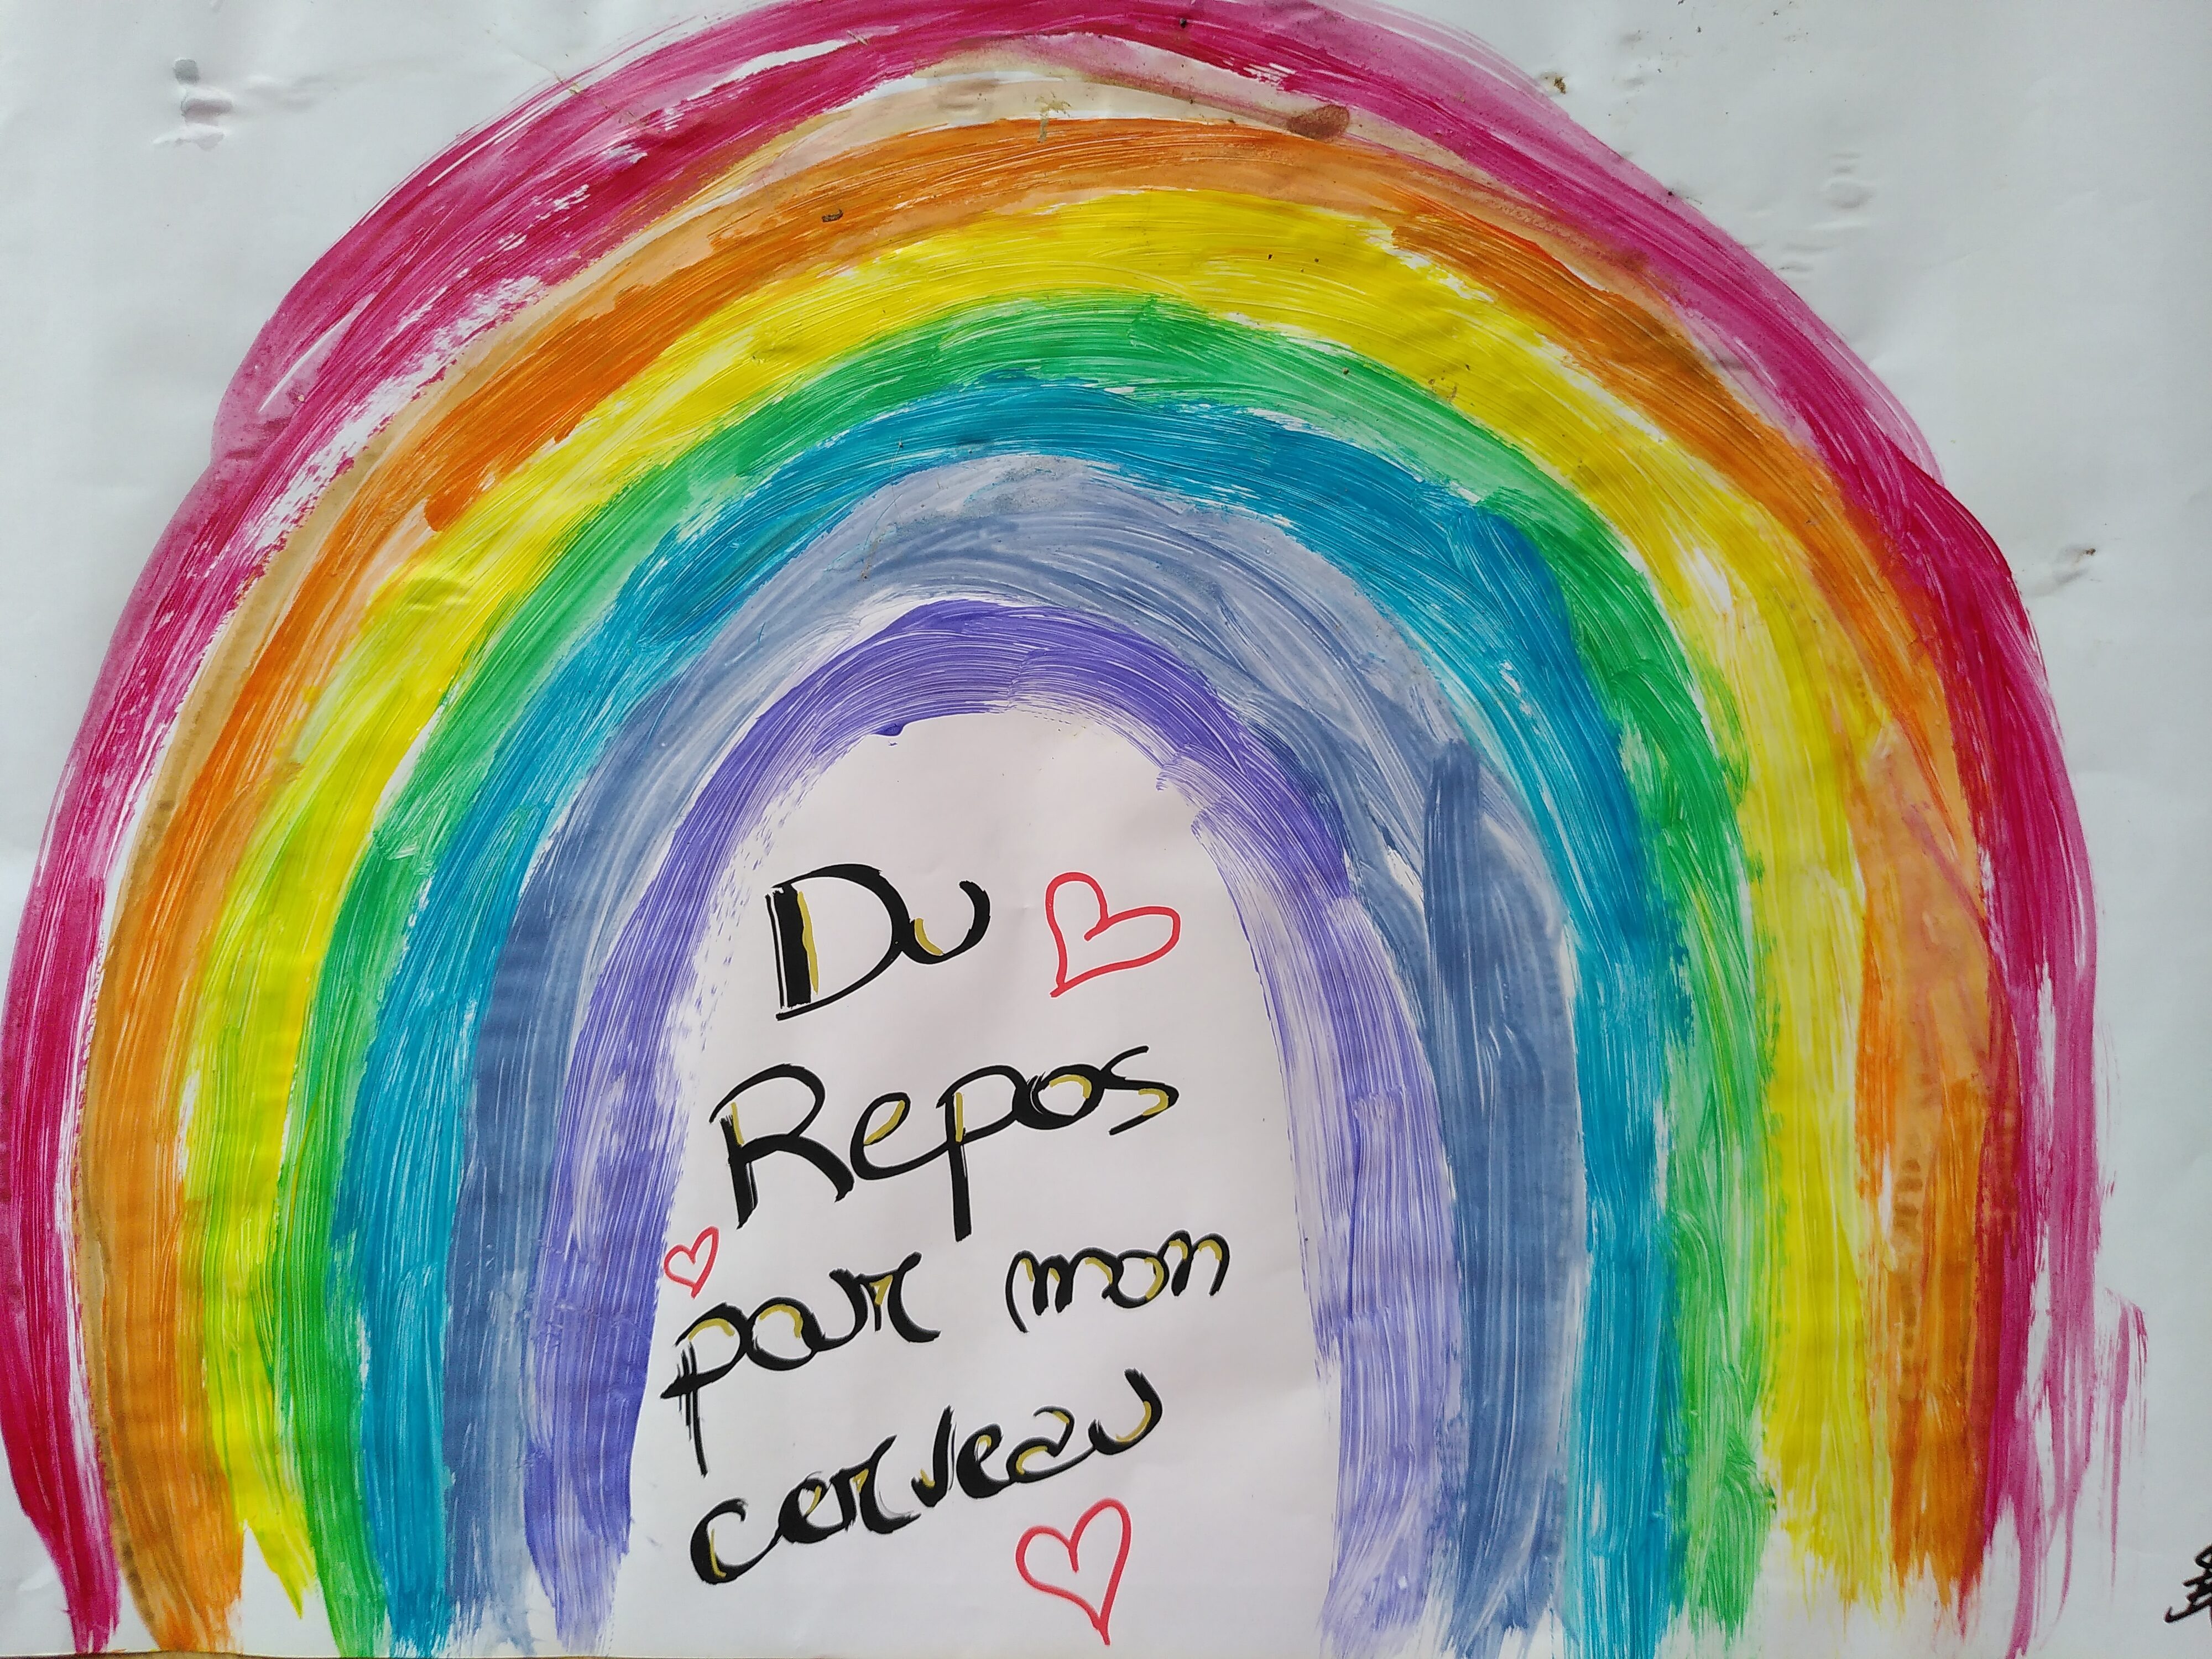 Du
Repos
pour mon
cerveau